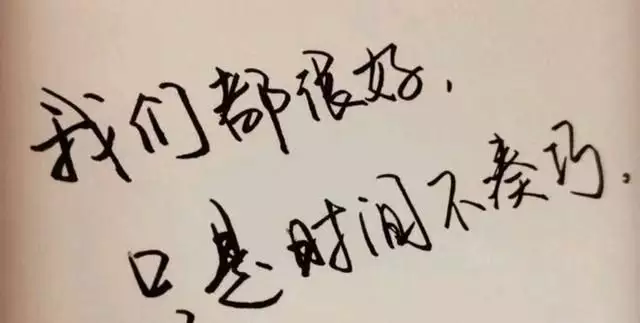 我们都很好，
只是时间不凑巧。